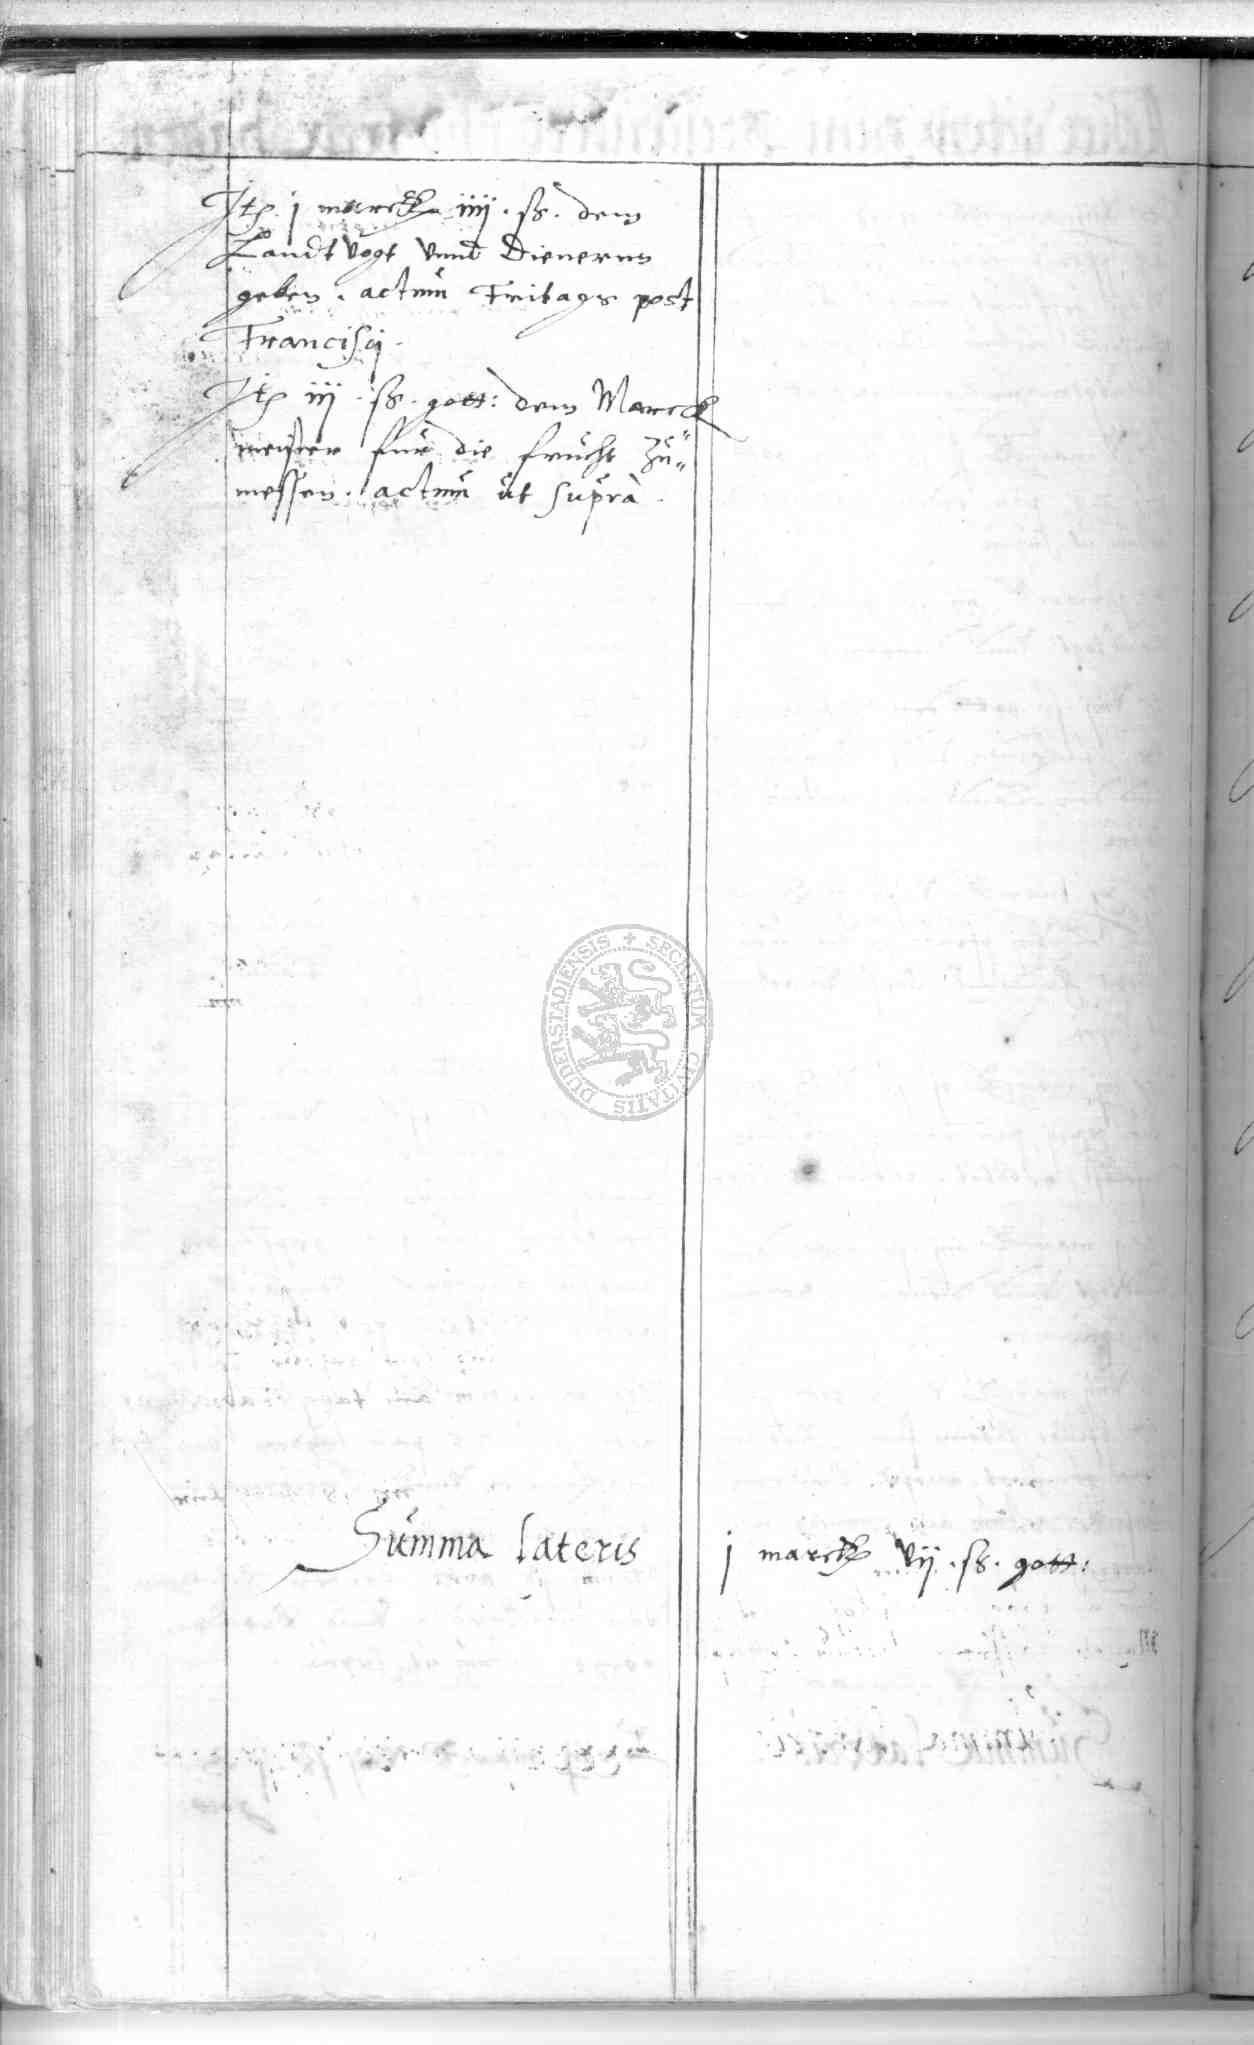 Itē j marck iiij . ß. dem
Landtvogt vnnd Dienernn
geben . actum Fritags post
Francisci .
Itē iij . ß. gott: dem Marck
meister fur die frucht zu=
messen . actum ut supra .
Summa lateris j marck vij . ß. gott:
SECRETUM CIVITATIS DUDERSTADIENSIS